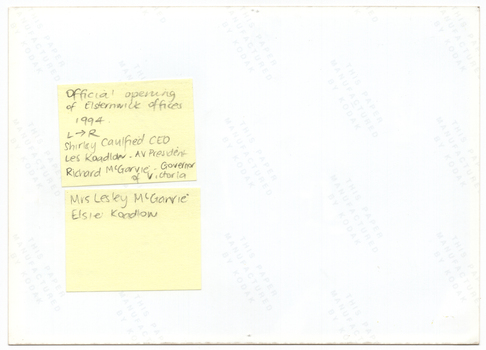 Official opening
of Elsternwick offices
1994.
L→R
Shirley Caulfied CEO
Les Kaadlow. AV President
Richard McGarvie. Governor
of Victoria
Mrs Lesley McGarvie
Elsie Kaadlow
THIS PAPER
MANUFACTURED
BY KODAK